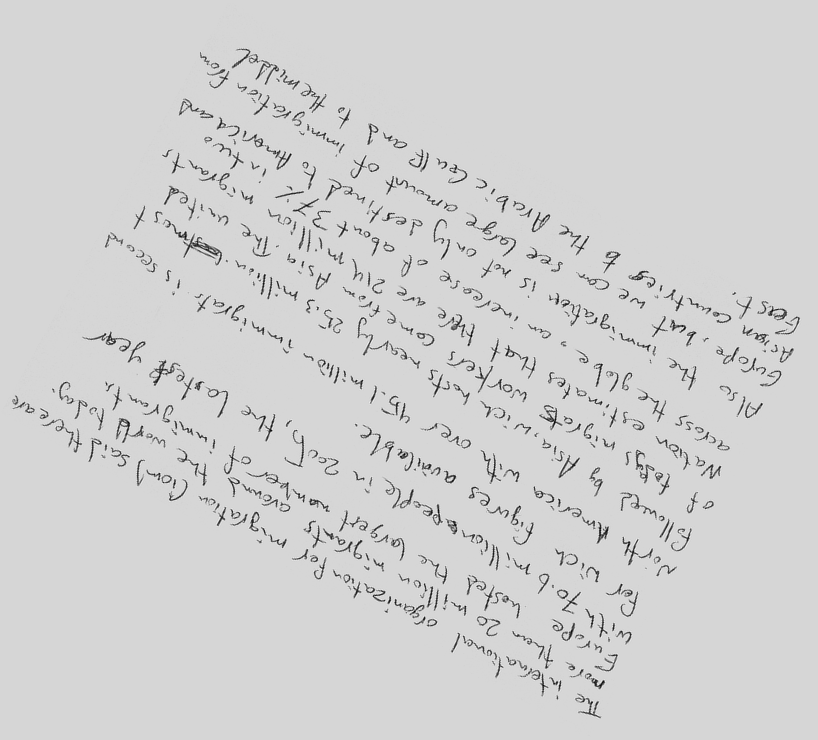 The international organization for migration (iom) said there are
more then 20 million migrants around the world today.
Europe hosted the largest number of immigrants,
with 70.6 million people in 2005, the lastest year
for wich figures available.
North America with over 45.1 million immigrats is second
followed by Asia, wich hosts nearly 25.3 million. t
of todays migrats workers come from Asia. The united
Nation estimates that there are 214 million migrants
across the globe, an increase of about 37% in two
Also the immigration is not only destined to America and
Europe, but we can see large amount of immigration from
Asian countries to the Arabic Gulf and to the middel
East.